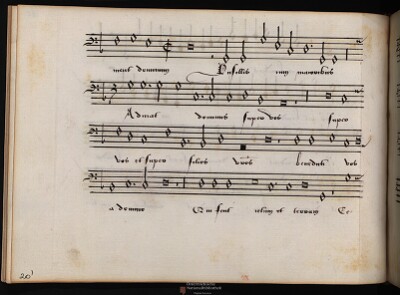 ment dominum Pusillis cum maioribus
Adiciat dominus super vos super
vos et super filios vros benedicti vos
a domino Qui fecit celum et terram Ce
20'